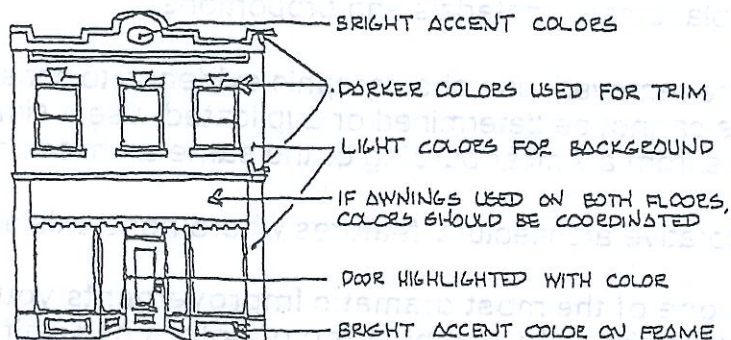 BRIGHT ACCENT COLORS
DARKER COLORS USED FOR TRIM
LIGHT COLORS FOR BACKGROUND
IF AWNINGS USED ON BOTH FLOORS,
COLORS SHOULD BE COORDINATED
DOOR HIGHLIGHTED WITH COLOR
BRIGHT ACCENT COLOR ON FRAME